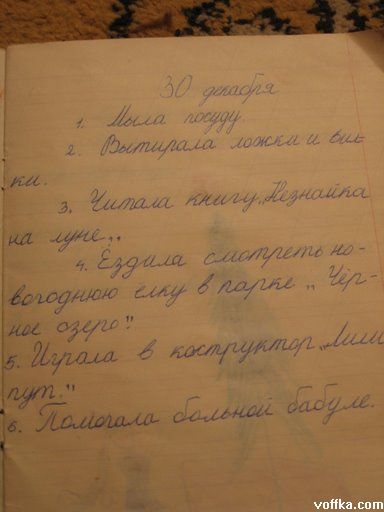 30 декабря
1. Мыла посуду.
2. Вытирала ложки и вил-
ки.
3. Читала книгу „Незнайка
на луне„.
4. Ездила смотреть но-
вогоднюю ёлку в парке „Чёр-
ное озеро".
5. Играла в коструктор „Лили
пут."
6. Помогала больной бабуле.
voffka.com